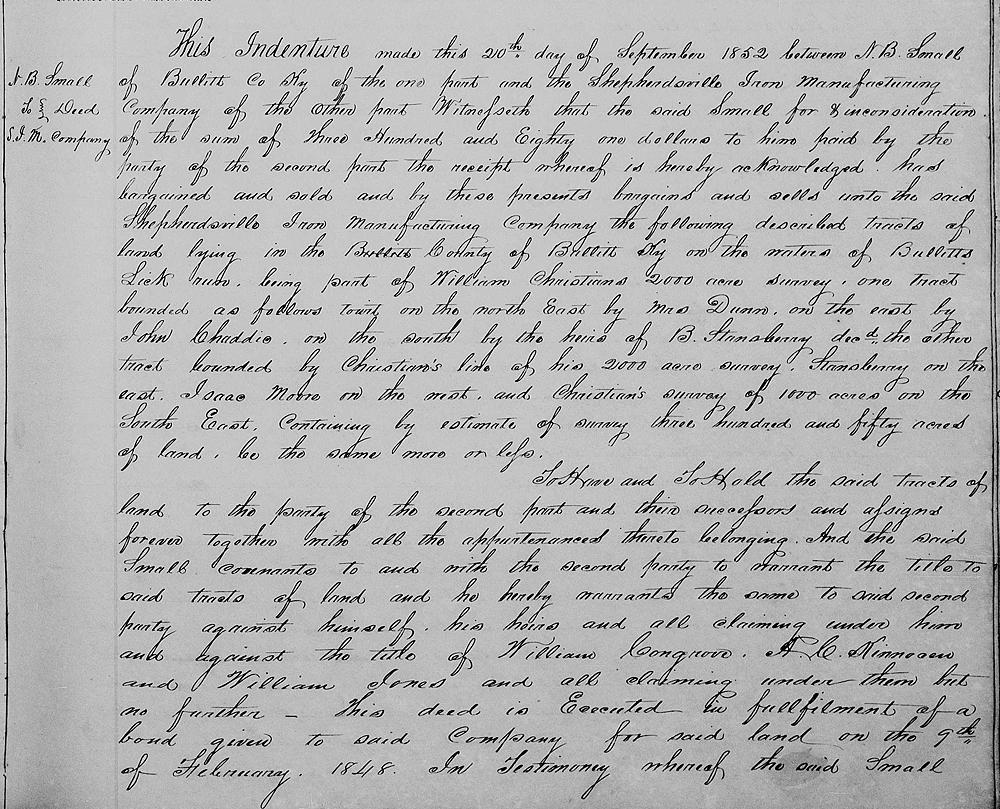 This Indenture made this 20th day of September 1852 between N. B. Small
N. B. Small
of Bullitt Co Ky of the one part and the Shepherdsville Iron Manufacturing
To } Deed
Company of the other part Witnesseth that the said Small for & inconsideration
S. I. M. Company
of the sum of Three Hundred and Eighty one dollars to him paid by the
party of the second part the receipt whereof is hereby acknowledged. has
bargained and sold and by these presents bargains and sells unto the said
Shepherdsville Iron Manufacturing Company the following described tracts of
land lying in the Bullitt County of Bullitt Ky on the waters of Bullitts
Lick run. being part of William Christians 2000 acre survey. one tract
bounded as follows towit, on the north East by Mrs Dunn. on the east by
John Chaddic. on the south by the heirs of B. Stansberry decd. the other
tract bounded by Christian's line of his 2000 acre survey. Stansberry on the
east. Isaac Moore on the west. and Christian's survey of 1000 acres on the
South East. Containing by estimate of survey three hundred and fifty acres
of land. be the same more or less.
To Have and To Hold the said tracts of
land to the party of the second part and their successors and assigns
forever together with all the appurtenances thereto belonging. And the said
Small covenants to and with the second party to warrant the title to
said tracts of land and he hereby warrants the same to said second
party against himself. his heirs and all claiming under him
and against the title of William Congrove. A. C. Kinnoaen
and William Jones and all claiming under them but
no further – This deed is Executed in fullfilment of a
bond given to said Company for said land on the 9th
of February. 1848. In Testimoney whereof the said Small